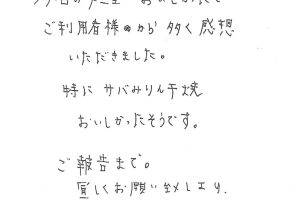 ご利用者様から多く感想
いただきました。
特にサバみりん干焼
おいしかったそうです。
ご報告まで。
宜しくお願い致します.